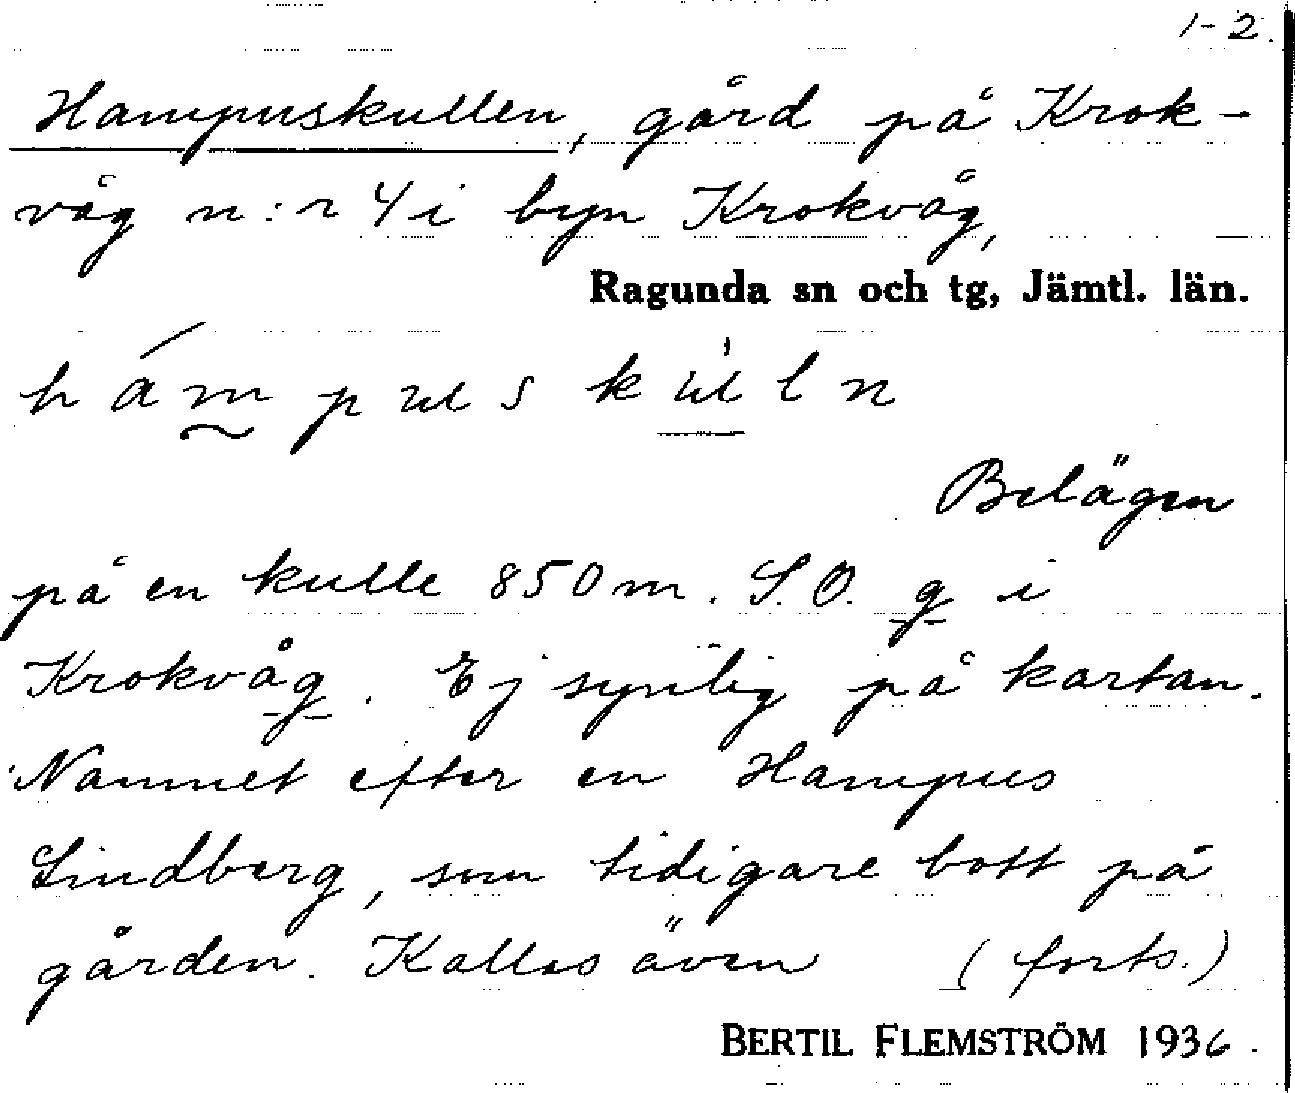 1-2.
Hampuskullen, gård på Krok-
våg n:r 4 i byn Krokvåg,
Ragunda sn och tg, Jämtl. län.
hámpuskùln
Belägen
på en kulle 850 m. S.O. g i
Krokvåg. Ej synlig på kartan.
Namnet efter en Hampus
Lindberg, som tidigare bott på
gården. Kallas även (forts.)
BERTIL FLEMSTRÖM 1936.